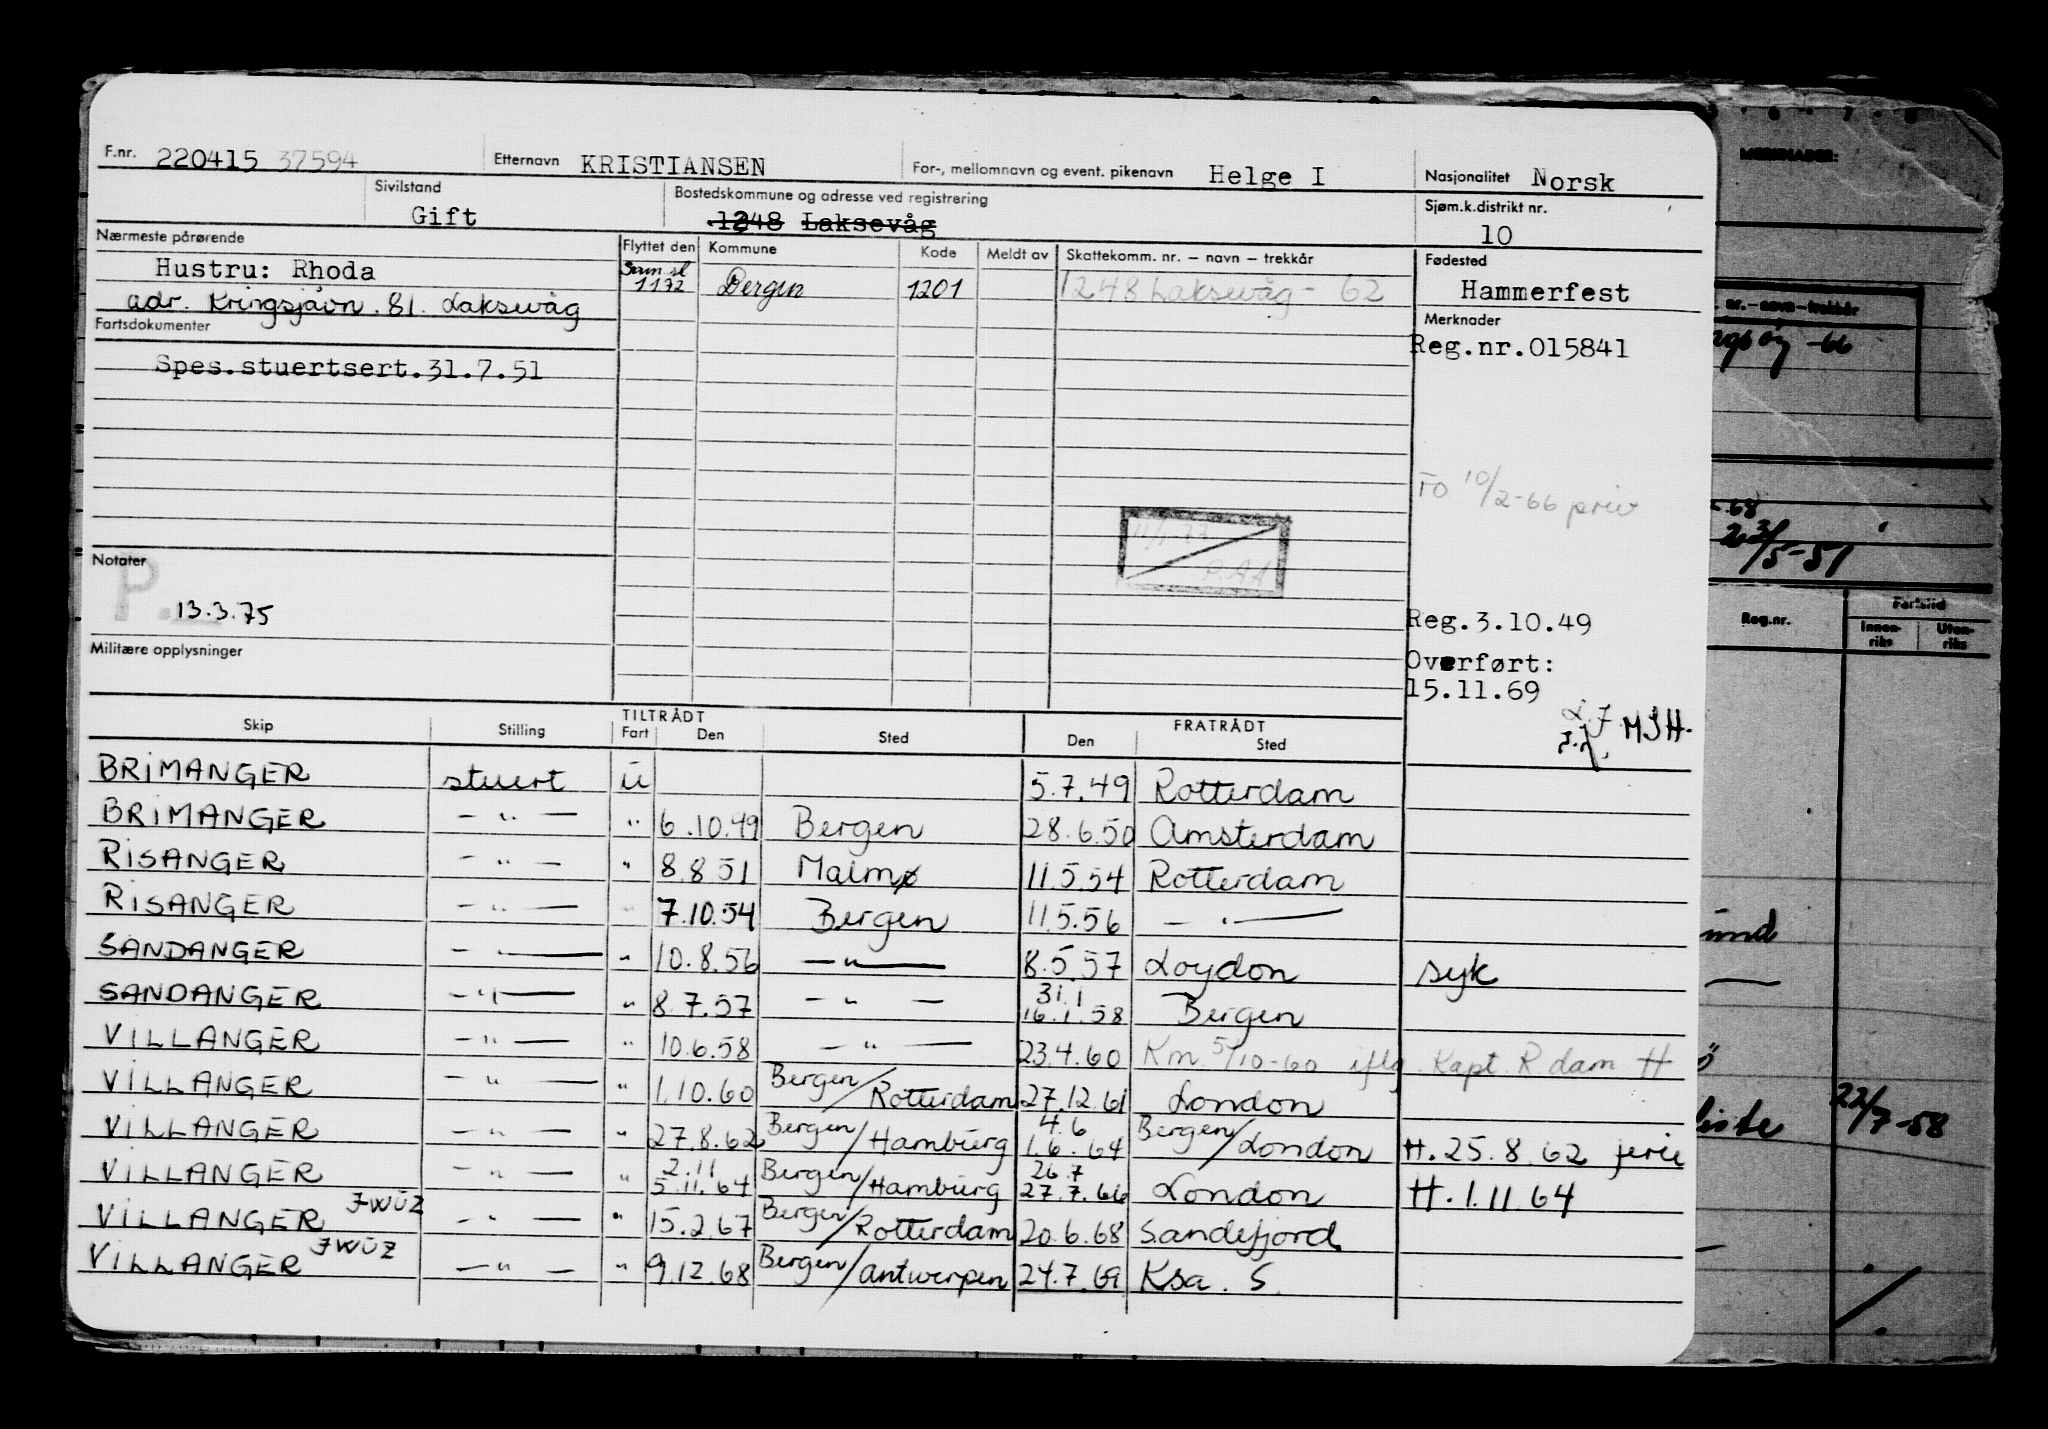 F.nr. 220415 37594 Etternavn KRISTIANSEN For-, mellomnavn og event. pikenavn Helge I Nasjonalitet Norsk
Sivilstand Gift Bostedskommune og adresse ved registrering 1248 Laksevåg Sjøm.k.distrikt nr. 10
Nærmeste pårørende Flyttet den Kommune Kode Meldt av Skattekomm. nr. – navn – trekkår Fødested
Hustru: Rhoda 1172 Bergen 1201 1248 Laksevåg - 62 Hammerfest
adr. Kringsjåvn. 81. Laksevåg
Fartsdokumenter Merknader
Spes.stuertsert.31.7.51 Reg.nr.015841
10/2-66 priv
11/1-77
P.AA
Notater
P. 13.3.75
Reg.3.10.49
Militære opplysninger
Overført:
15.11.69
MJH.
TILTRÅDT FRATRÅDT
Skip Stilling Fart Den Sted Den Sted
BRIMANGER stuert u 5.7.49 Rotterdam
BRIMANGER - " - " 6.10.49 Bergen 28.6.50 Amsterdam
RISANGER - " - " 8.8.51 Malmø 11.5.54 Rotterdam
RISANGER - " - " 7.10.54 Bergen 11.5.56 - " -
SANDANGER - " - " 10.8.56 - " - 8.5.57 Loydon syk
SANDANGER - " - " 8.7.57 - " - 31.1 16.1.58 Bergen
VILLANGER - " - " 10.6.58 - " - 23.4.60 Km 5/10-60 iflg. Kapt. R.dam H
VILLANGER - " - " 1.10.60 Bergen/Rotterdam 27.12.61 London
VILLANGER - " - " 27.8.62 Bergen/Hamburg 4.6 1.6.64 Bergen/London H.25.8.62 ferie
VILLANGER - " - " 2.11 5.11.64 Bergen/Hamburg 26.7 27.7.66 London H.1.11.64
VILLANGER JWUZ - " - " 15.2.67 Bergen/Rotterdam 20.6.68 Sandefjord
VILLANGER JWUZ - " - " 9.12.68 Bergen/Antwerpen 24.7.69 Ksa. S.
MERKNADER:
nr.–navn–trekkår
-66
23/5-51
Reg.nr. Fartstid
Innen-riks Uten-riks
22/7-58